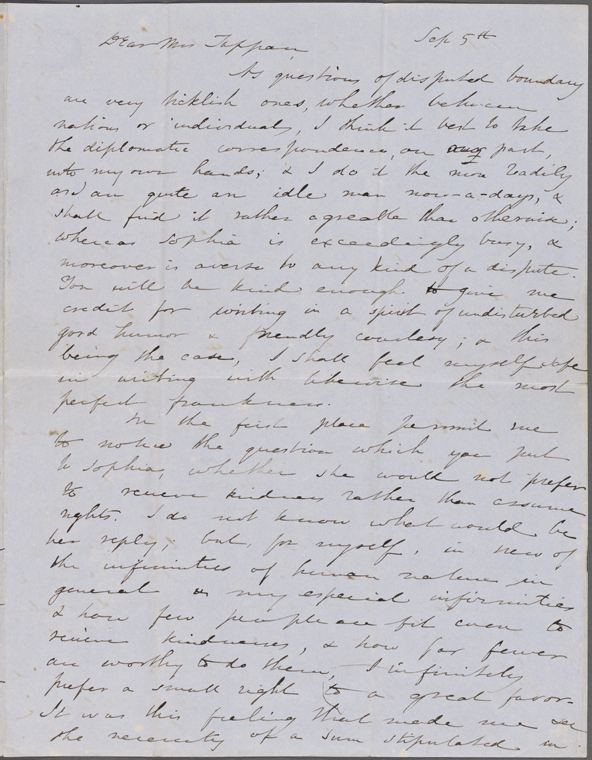 Dear Mrs Tappan, Sep 5th
As questions of disputed boundary
are very ticklish ones, whether between
nations or individuals, I think it best to take
the diplomatic correspondence, on our part,
into my own hands; & I do it the more readily
as I am quite an idle man now-a-days, &
shall find it rather agreeable than otherwise;
whereas Sophia is exceedingly busy, &
moreover is averse to any kind of a dispute.
You will be kind enough to give me
credit for writing in a spirit of undisturbed
good humor & friendly courtesy; & this
being the case, I shall feel myself safe
in writing with likewise the most
perfect frankness.
In the first place permit me
to notice the question which you put
to Sophia, whether she would not prefer
to receive kindness rather than assume
rights. I do not know what would be
her reply; but, for myself, in view of
the infirmities of human nature in
general & my especial infirmities
& how few people are fit even to
receive kindnesses, & how far fewer
are worthy to do them, I infinitely
prefer a small right to a great favor.
It was this feeling that made me see
the necessity of a sum stipulated in